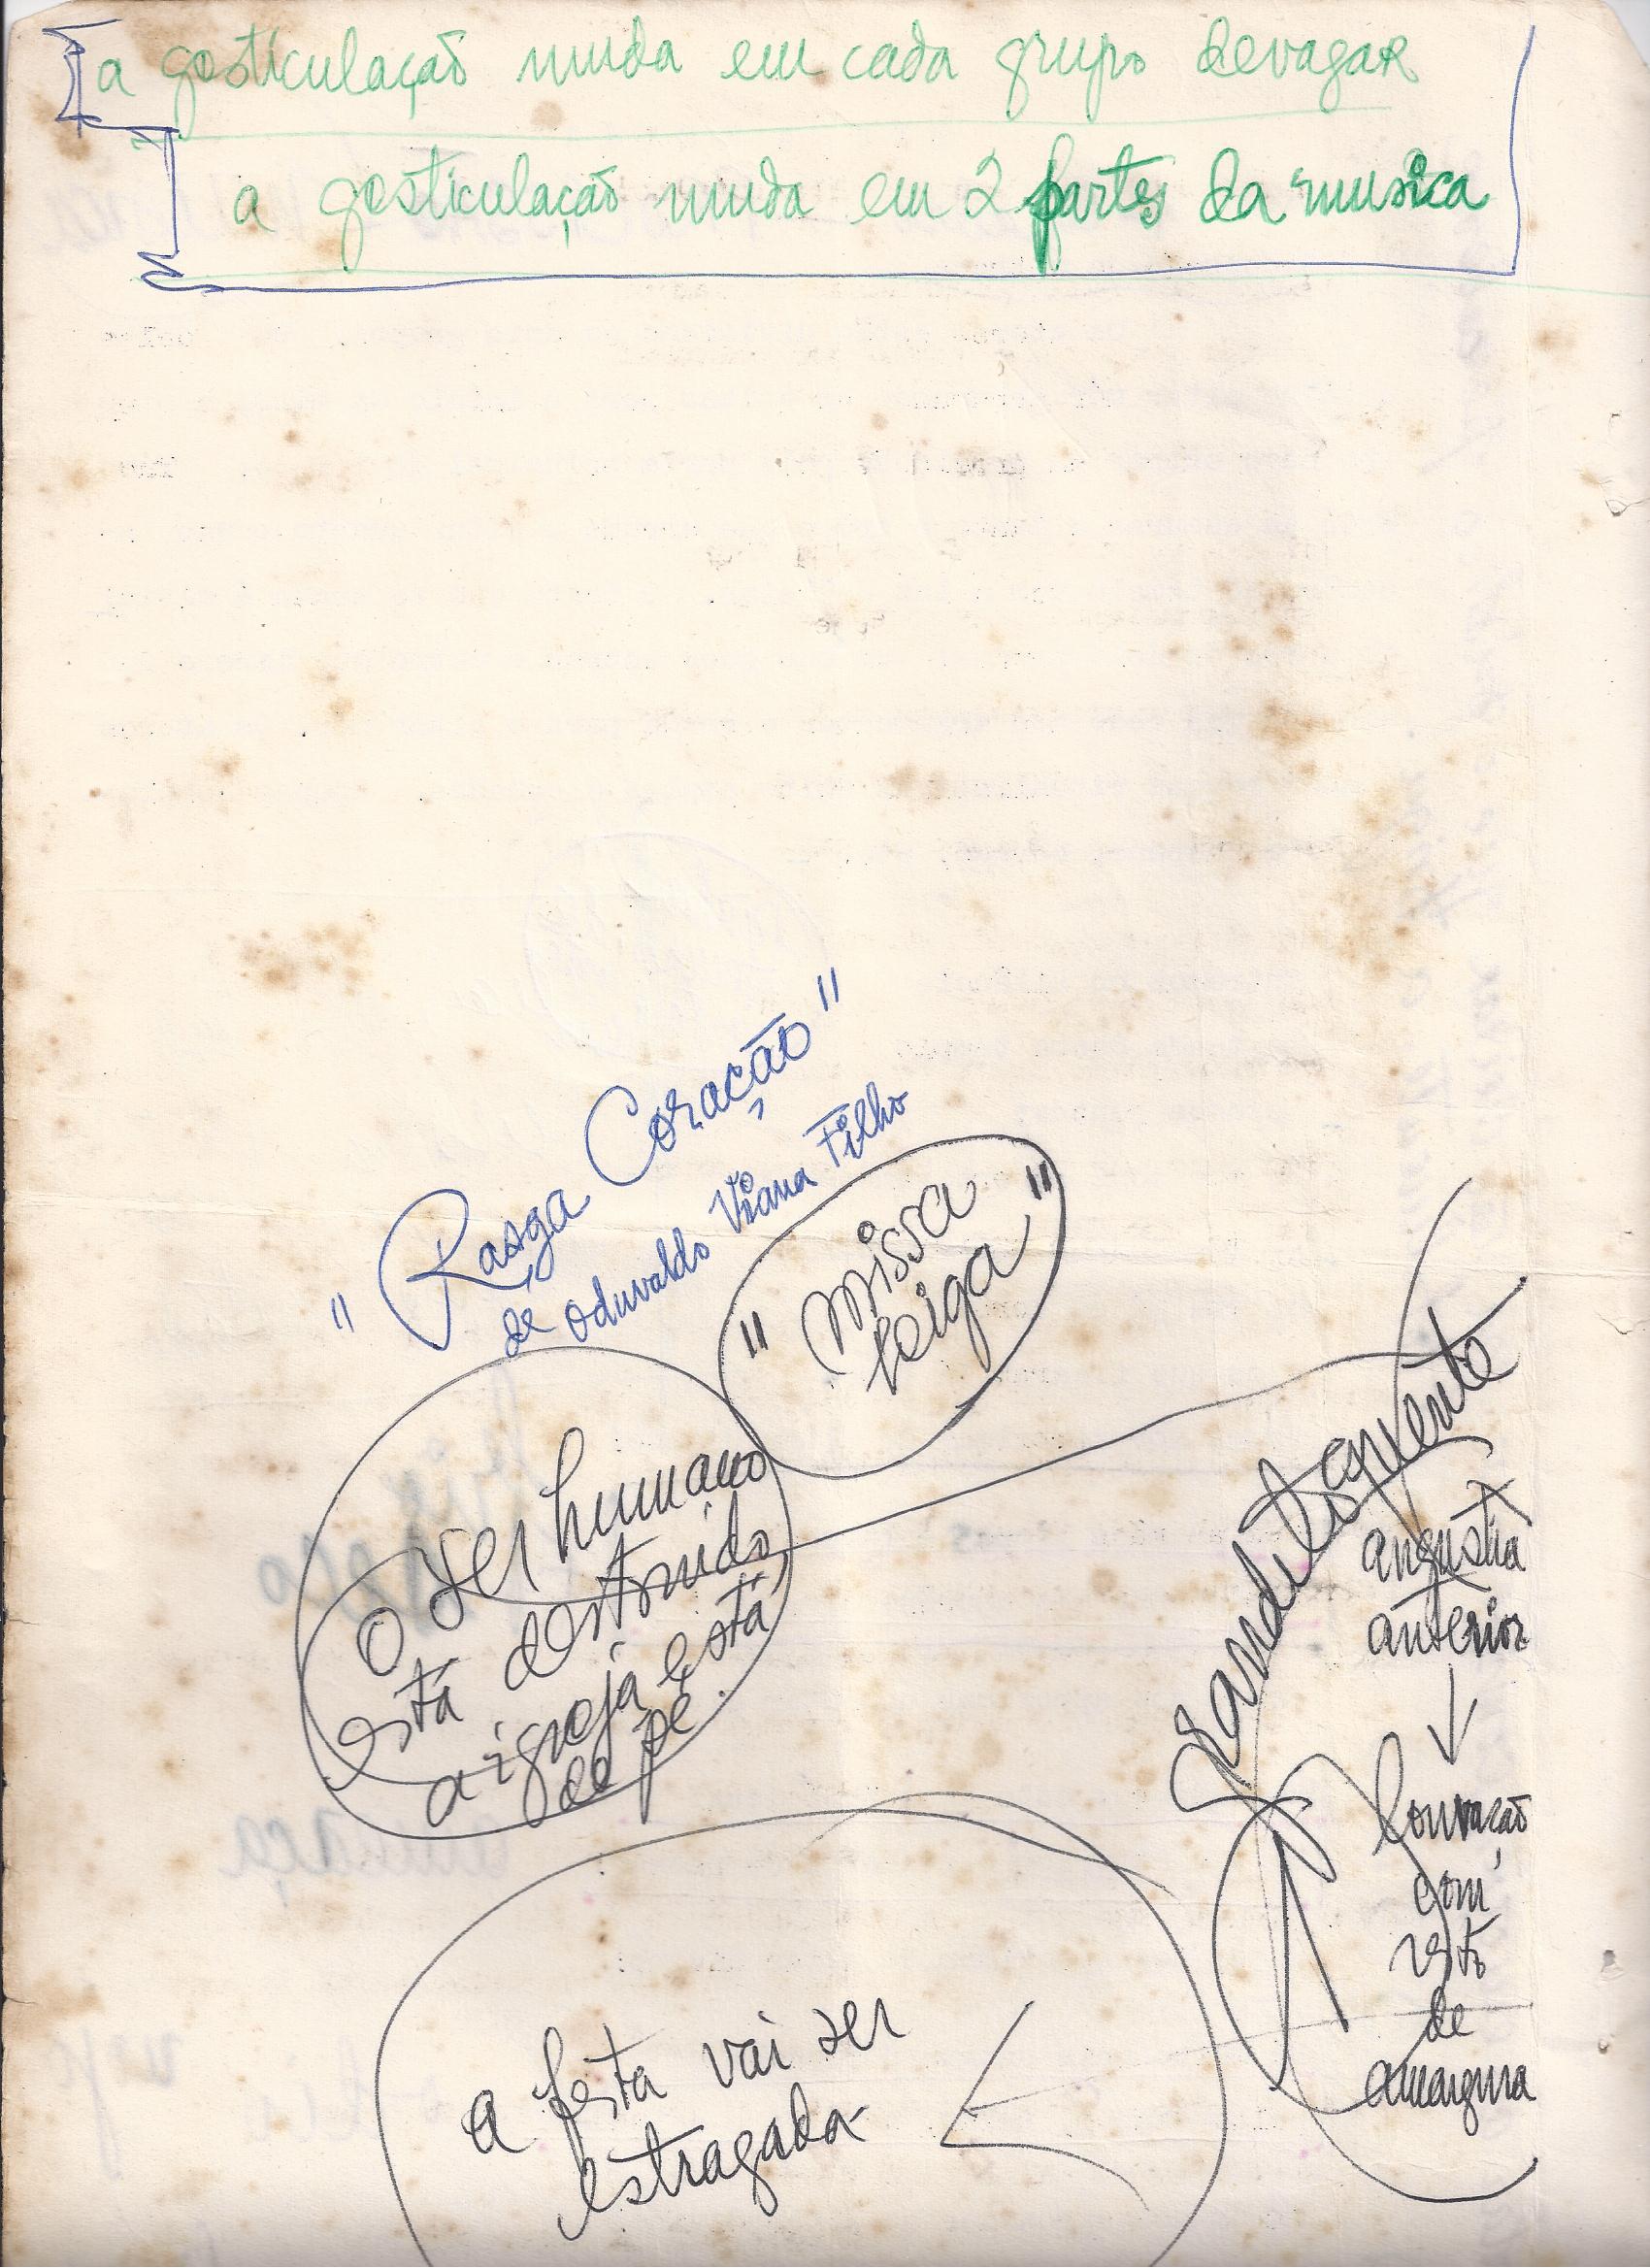 a gesticulação muda em cada grupo devagar
a gesticulação muda em 2 partes da musica
"Rasga Coração"
de Oduvaldo Viana Filho
"missa
leiga"
O ser humano
está destruido,
a igreja está
de pé.
grandiloquente
angustia
anterior
louvação
com
resto
de
amargura
a festa vai ser
estragada